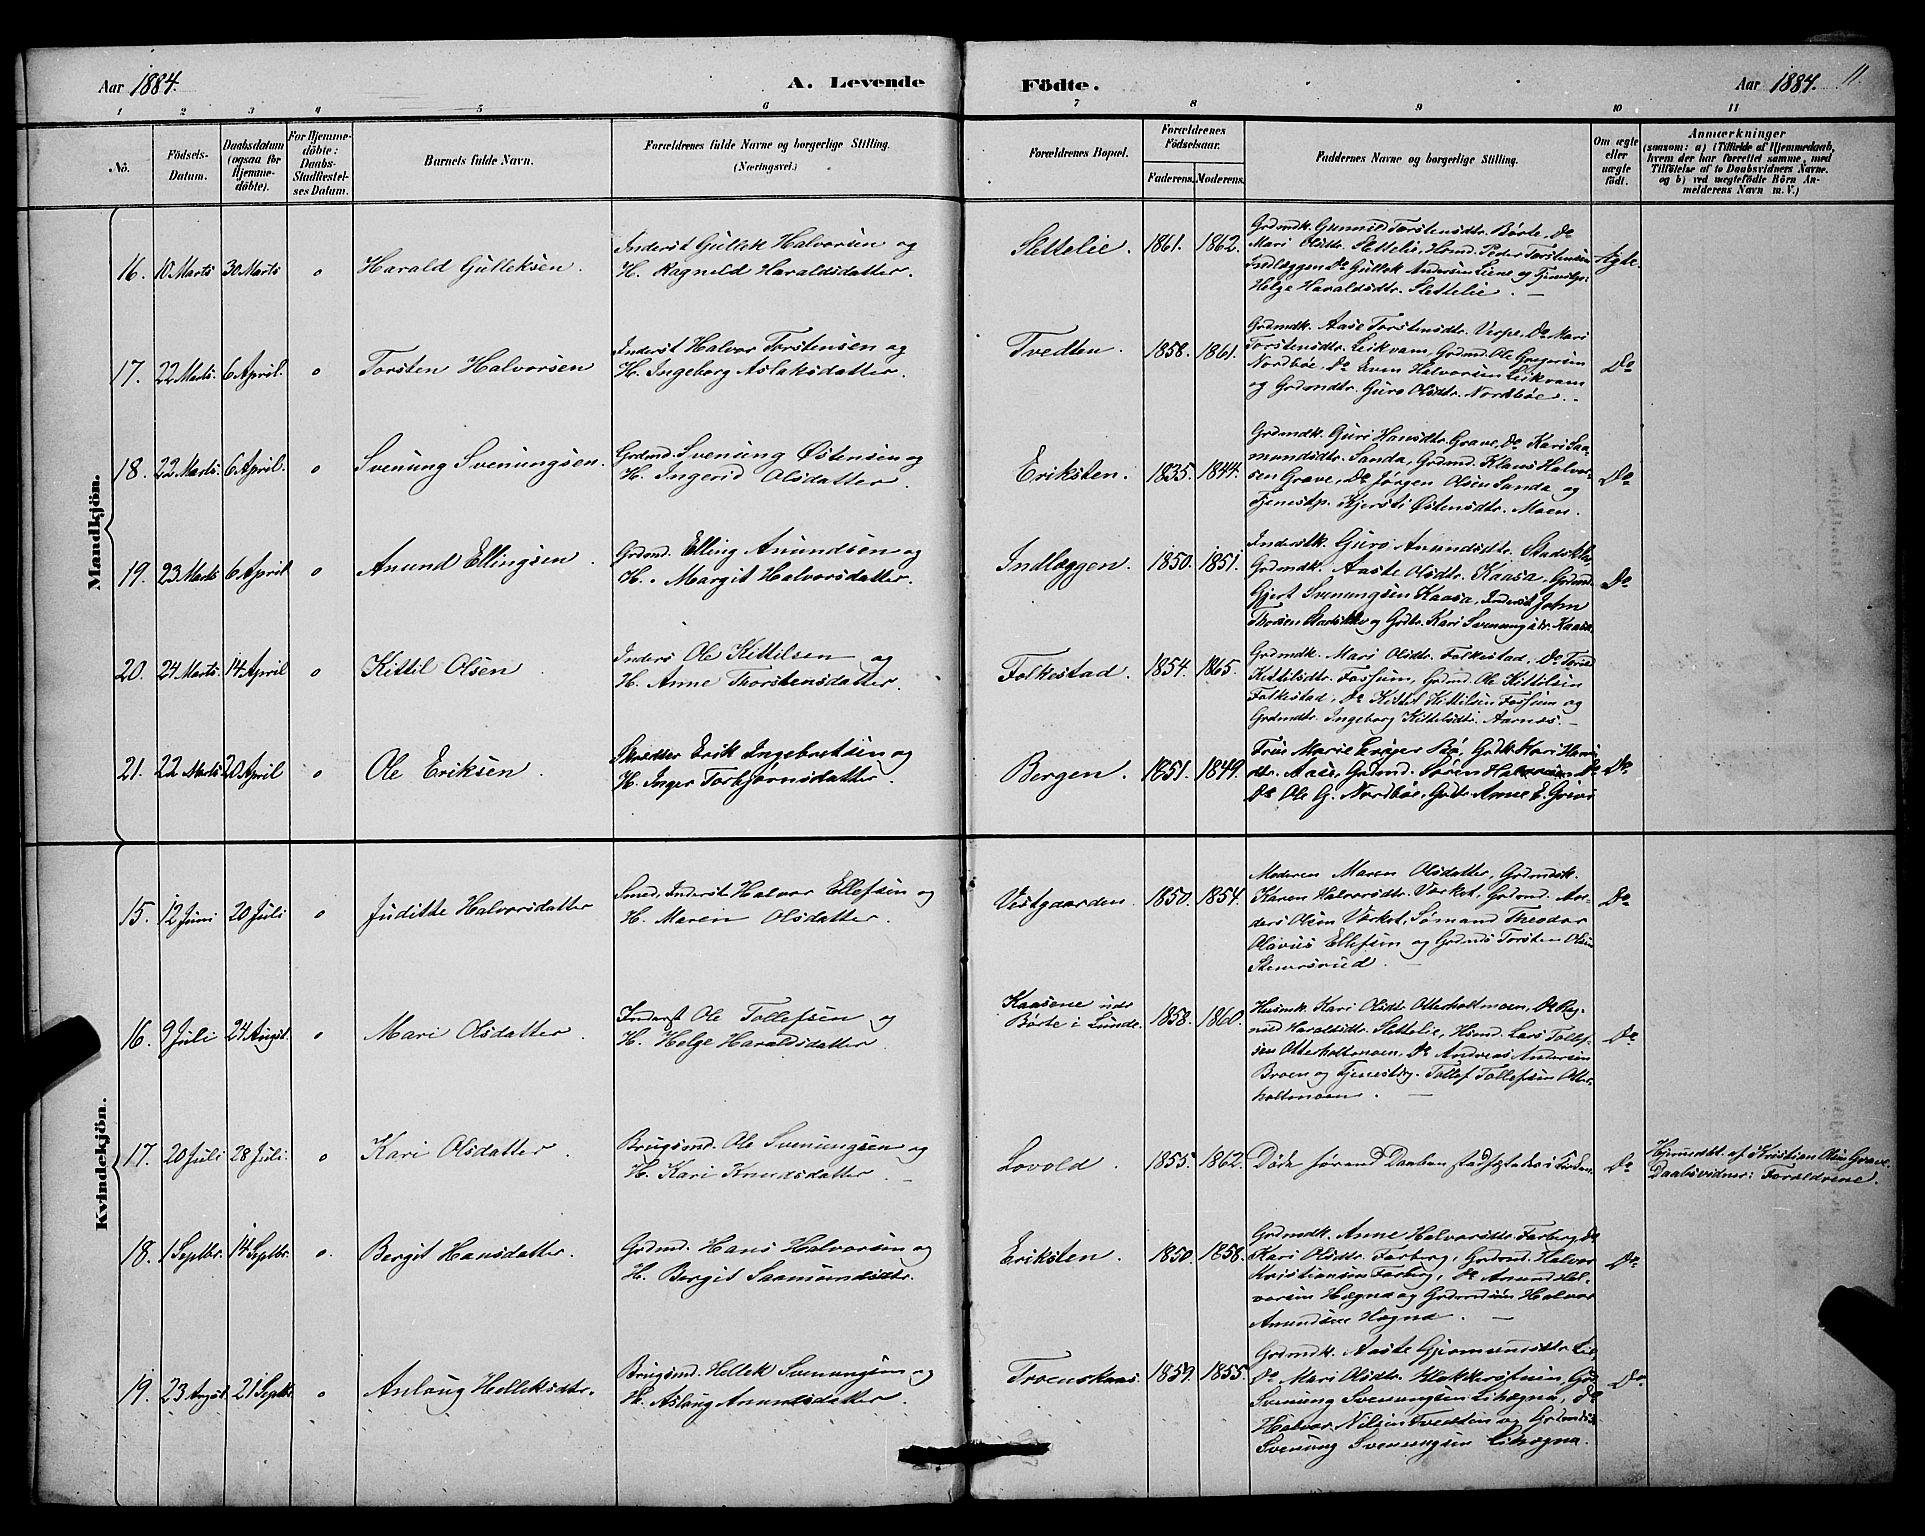 Aar 1884. A. Levende Födte. Aar 1884. 11.
1 2 3 4 5 6 7 8 9 10 11
No.
Födsels-
Datum.
Daabsdatum
(ogsaa for
Hjemme-
döbte).
For Hjemme-
döbte:
Daabs-
Stadfæstel-
ses Datum.
Barnets fulde Navn.
Forældrenes fulde Navne og borgerlige Stilling.
(Næringsvei.)
Forældrenes Bopæl.
Forældrenes
Födselsaar.
Faderens. Moderens.
Faddernes Navne og borgerlige Stilling.
Om ægte
eller
uægte
födt.
Anmærkninger
(saasom: a) i Tilfælde af Hjemmedaab,
hvem der har forrettet samme, med
Tilföielse af to Daabsvidners Navne.
og b) ved uægtefödte Börn An-
melderens Navn m. V.)
Mandkjön.
16. 10 Marts 30 Marts o Harald Gulleksen.
Inderst Gullek Halvorsen og
H. Ragnild Haraldsdatter.
Slettelie. 1861. 1862.
Grdmdk. Gunnil Torstensdtr. Börte, Do
Mari Olsdtr. Slettelie, Hsmd. Peder Torstensen
Indlæggen Do Gullek Andersen Liene og Tjenestp.
Helge Haraldsdtr. Slettelie. —
Ægte.
17. 22 Marts 6 April. o Torsten Halvorsen
Inderst Halvor Torstensen og
H. Ingeborg Aslaksdatter.
Tvedten. 1858. 1861.
Grdmdk. Aase Torstensdtr. Verpe, Do Mari
Torstensdtr. Leikvam, Grdmd. Ole Gregersen
Nordböe, Do Even Halvorsen Leikvam
og Grdmdtr. Guro Olsdtr. Nordböe.
Do
18. 22 Marts 6 April. o Svenung Svenungsen.
Grdmd. Svenung Østensen og
H. Ingerid Olsdatter.
Eriksten. 1835. 1844.
Grdmdk. Guri Hansdtr. Grave, Do Kari Saa-
mundsdtr. Sanda, Grdmd. Klaus Halvor-
sen Grave, Do Jørgen Olsen Sanda og
Tjenestp. Kjersti Østensdtr. Moen.
Do
19. 23 Marts 6 April o Anund Ellingsen.
Grdmd. Elling Anundsen og
H. Margit Halvorsdatter.
Indlæggen. 1850. 1851.
Inderstk. Guro Anundsdtr. Stadskleiv,
Grdmdk. Aaste Olsdtr. Kaasa, Grdmd.
Gjert Svenungsen Kaasa, Inderst John
Thorsen Stadskleiv og Grdtr. Kari Svenungsdtr. Kaasa.
Do
20. 24 Marts 14 April o Kittil Olsen.
Inders Ole Kittilsen og
H. Anne Thorstensdatter.
Folkestad. 1854. 1865.
Grdmdk. Mari Olsdtr. Folkestad, Do Torid
Kittilsdtr. Fossum, Grdmd. Ole Kittilsen
Folkestad, Do Kittil Kittilsen Fossum og
Grdmdtr. Ingeborg Kittelsdtr. Aarnæs. —
21. 22 Marts 20 April o Ole Eriksen.
Skrædder Erik Ingebretsen og
H. Inger Torbjørnsdatter.
Bergen. 1851. 1849.
Frue Marie Bø, Grdk. Kari Hans-
dtr. Aase, Grdmd. Søren Halvorsen Do
Do Ole G. Nordböe, Grdtr. Anne E. Grivi
Do
Kvindekjön.
15. 12 Juni 20 Juli o Juditte Halvorsdatter
Smed, Inderst Halvor Ellefsen og
H. Maren Olsdatter.
Vestgaarden. 1850. 1854.
Moderen Maren Olsdatter, Grdmdsk.
Karen Halvorsdtr. Værket, Grdmd. An-
ders Olsen Værket, Sømand Theodor
Olavus Ellefsen og Grdmds. Torsten Olsen
Stenersrud. —
Do
16. 9 Juli 24 Augst. o Mari Olsdatter.
Inderst Ole Tollefsen og
H. Helge Haraldsdatter.
Kaasene udr
Börte i Lunde. 1858. 1860.
Husmk. Kari Olsdtr. Otterholtmoen, Do Rag-
nild Haraldsdtr. Slettelie, Hsmd. Lars Tollef-
sen Otterholtmoen, Do Andreas Andersen
Broen og Tjenestdrg. Tollef Tollefsen Otter-
holtmoen. —
Do
17. 20 Juli 28 Juli. o Kari Olsdatter.
Brugsmd. Ole Svenungsen og
H. Kari Knudsdatter. —
Lovold. 1855. 1862.
Døde førend Daaben stadfæstedes i Kirken.
Do
Hjemmedbt. af Kristian Olsen Grave.
Daabsvidner: Forældrene.
18. 1 Septbr. 14 Septbr. o. Bergit Hansdatter.
Grdmd. Hans Halvorsen og
H. Bergit Saamundsdtr.
Eriksten. 1850. 1858.
Grdmdk. Anne Halvorsdtr. Farberg, Do
Kari Olsdtr. Farberg, Grdmd. Halvor
Kristiansen Farberg, Do Anund Hal-
vorsen Hægna og Grdmdsøn Halvor
Anundsen Hægna. —
Do
19. 23 Augst. 21 Septbr. o Aslaug Helleksdtr.
Brugsmd. Hellek Svenungsen og
H. Aslaug Anundsdatter.
Troenskaas. 1859. 1855.
Grdmdk. Aaste Gjermundsdtr. Lie,
Do Mari Olsdtr. Klokkerstuen, Grd.
Svenung Svenungsen Lihægna, Do
Halvor Nilsen Tvedten og Grdmds.
Svenung Svenungsen Lihægna.
Do